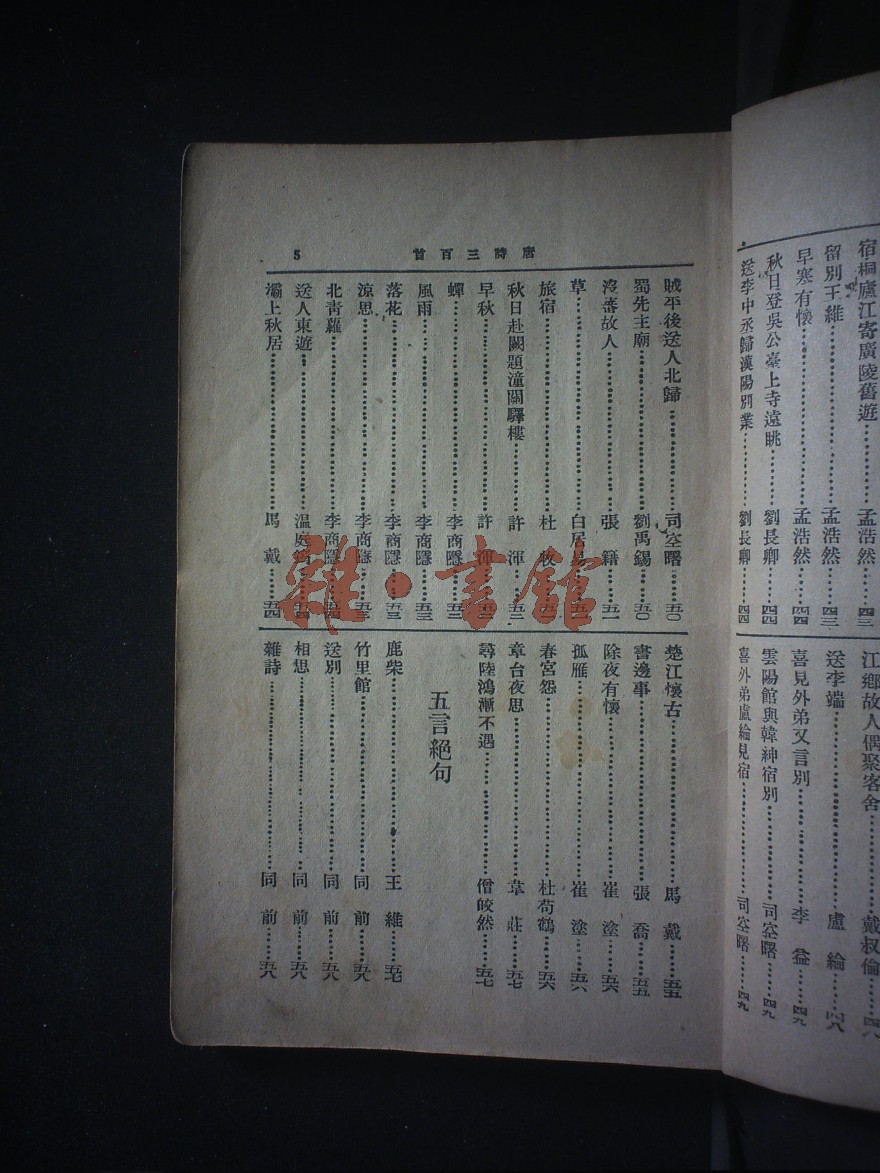 宿桐廬江寄廣陵舊遊………孟浩然…四三
留別王維………孟浩然…四三
早寒有懷………孟浩然…四四
秋日登吳公臺上寺遠眺………劉長卿…四四
送李中丞歸漢陽別業………劉長卿…四四
江鄉故人偶聚客舍………戴叔倫…四八
送李端………盧綸…四八
喜見外弟又言別………李益…四九
雲陽館與韓紳宿別………司空曙…四九
喜外弟盧綸見宿………司空曙…四九
唐詩三百首 5
賊平後送人北歸………司空曙…五〇
蜀先主廟………劉禹錫…五〇
沒蕃故人………張籍…五一
草………白居易…五一
旅宿………杜牧…五二
秋日赴闕題潼關驛樓………許渾…五二
早秋………許渾…五二
蟬………李商隱…五三
風雨………李商隱…五三
落花………李商隱…五三
涼思………李商隱…五三
北青蘿………李商隱…五四
送人東遊………溫庭筠…五四
灞上秋居………馬戴…五四
楚江懷古………馬戴…五五
書邊事………張喬…五五
除夜有懷………崔塗…五六
孤雁………崔塗…五六
春宮怨………杜荀鶴…五六
章台夜思………韋莊…五七
尋陸鴻漸不遇………僧皎然…五七
五言絕句
鹿柴………王維…五七
竹里館………同前…五八
送別………同前…五八
相思………同前…五八
雜詩………同前…五八
雜·書館